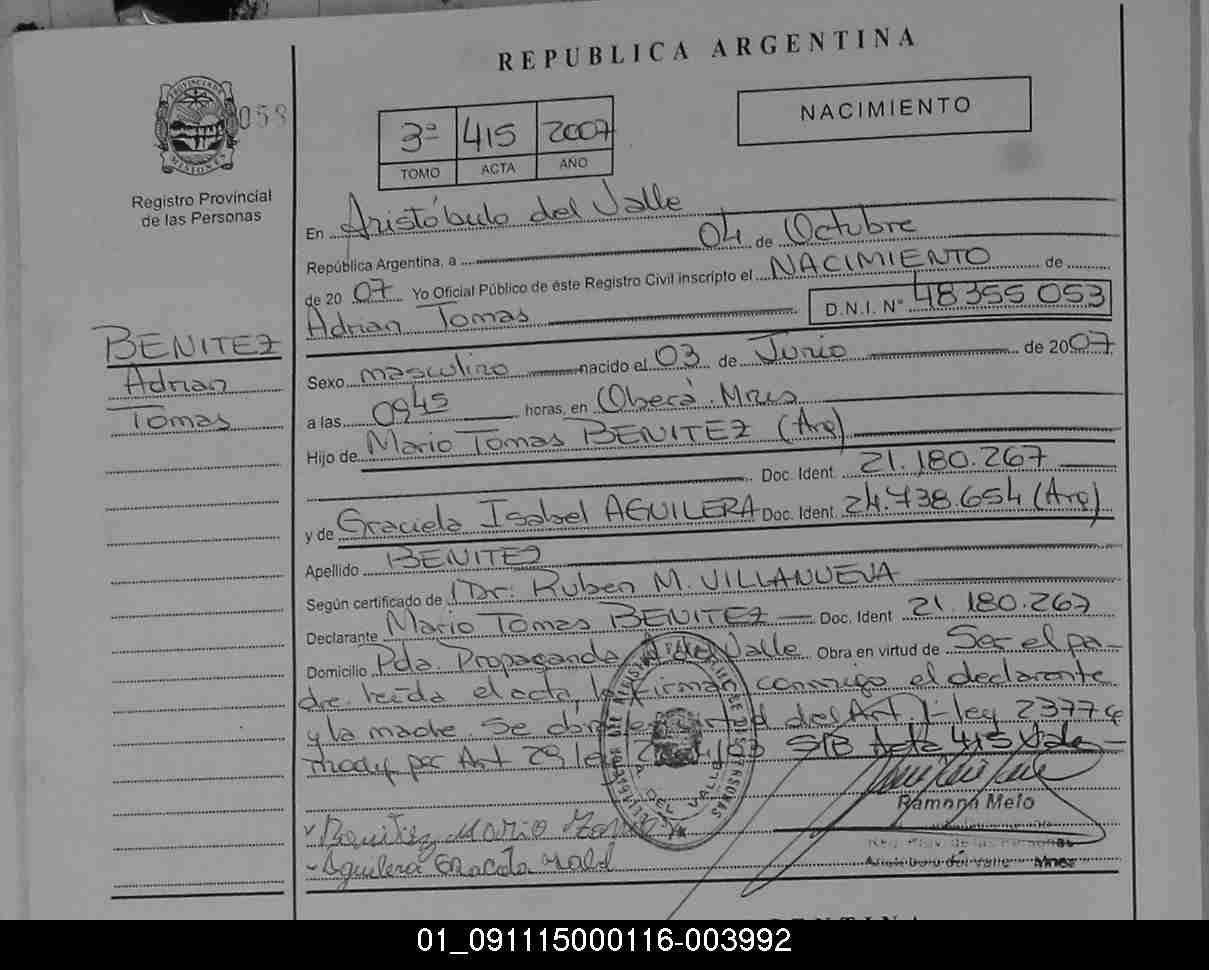 REPUBLICA ARGENTINA
PROVINCIA DE
MISIONES
058
Registro Provincial
de las Personas
3ª 415 2007
TOMO ACTA AÑO
NACIMIENTO
En Aristóbulo del Valle
República Argentina, a 04 de Octubre
de 20 07 Yo Oficial Público de éste Registro Civil inscripto el NACIMIENTO de
Adrian Tomas D.N.I. Nº 48 355 053
BENITEZ
Adrian
Tomas
Sexo masculino nacido el 03 de Junio de 2007
a las 09 45 horas, en Oberá. Mnes
Hijo de Mario Tomas BENITEZ (Arg)
Doc. Ident. 21.180.267
y de Graciela Isabel AGUILERA Doc. Ident. 24.738.654 (Arg)
Apellido BENITEZ
Según certificado de Dr. Ruben M. VILLANUEVA
Declarante Mario Tomas BENITEZ Doc. Ident 21.180.267
Domicilio Pda. Propaganda A. del Valle Obra en virtud de Ser el pa-
dre leída el acta, la firman conmigo el declarante
y la madre. Se de Art 1- ley 23776
modf por Art 29 S/B Acta 415 Vale
Benitez Mario
Aguilera
Ramona Melo
Reg. Prov. de las Personas
Aristóbulo del Valle Mnes
ARISTOBULO DEL VALLE
ARGENTINA
01_091115000116-003992